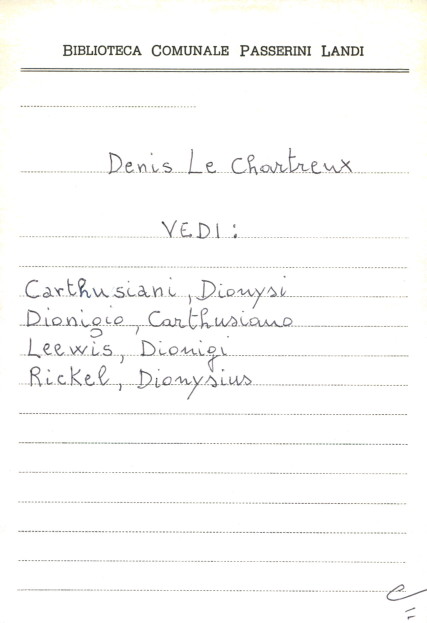 BIBLIOTECA COMUNALE PASSERINI LANDI
Denis Le Chartreux
VEDI:
Carthusiani, Dionysi
Dionigio, Carthusiano
Leewis, Dionigi
Rickel, Dionysius